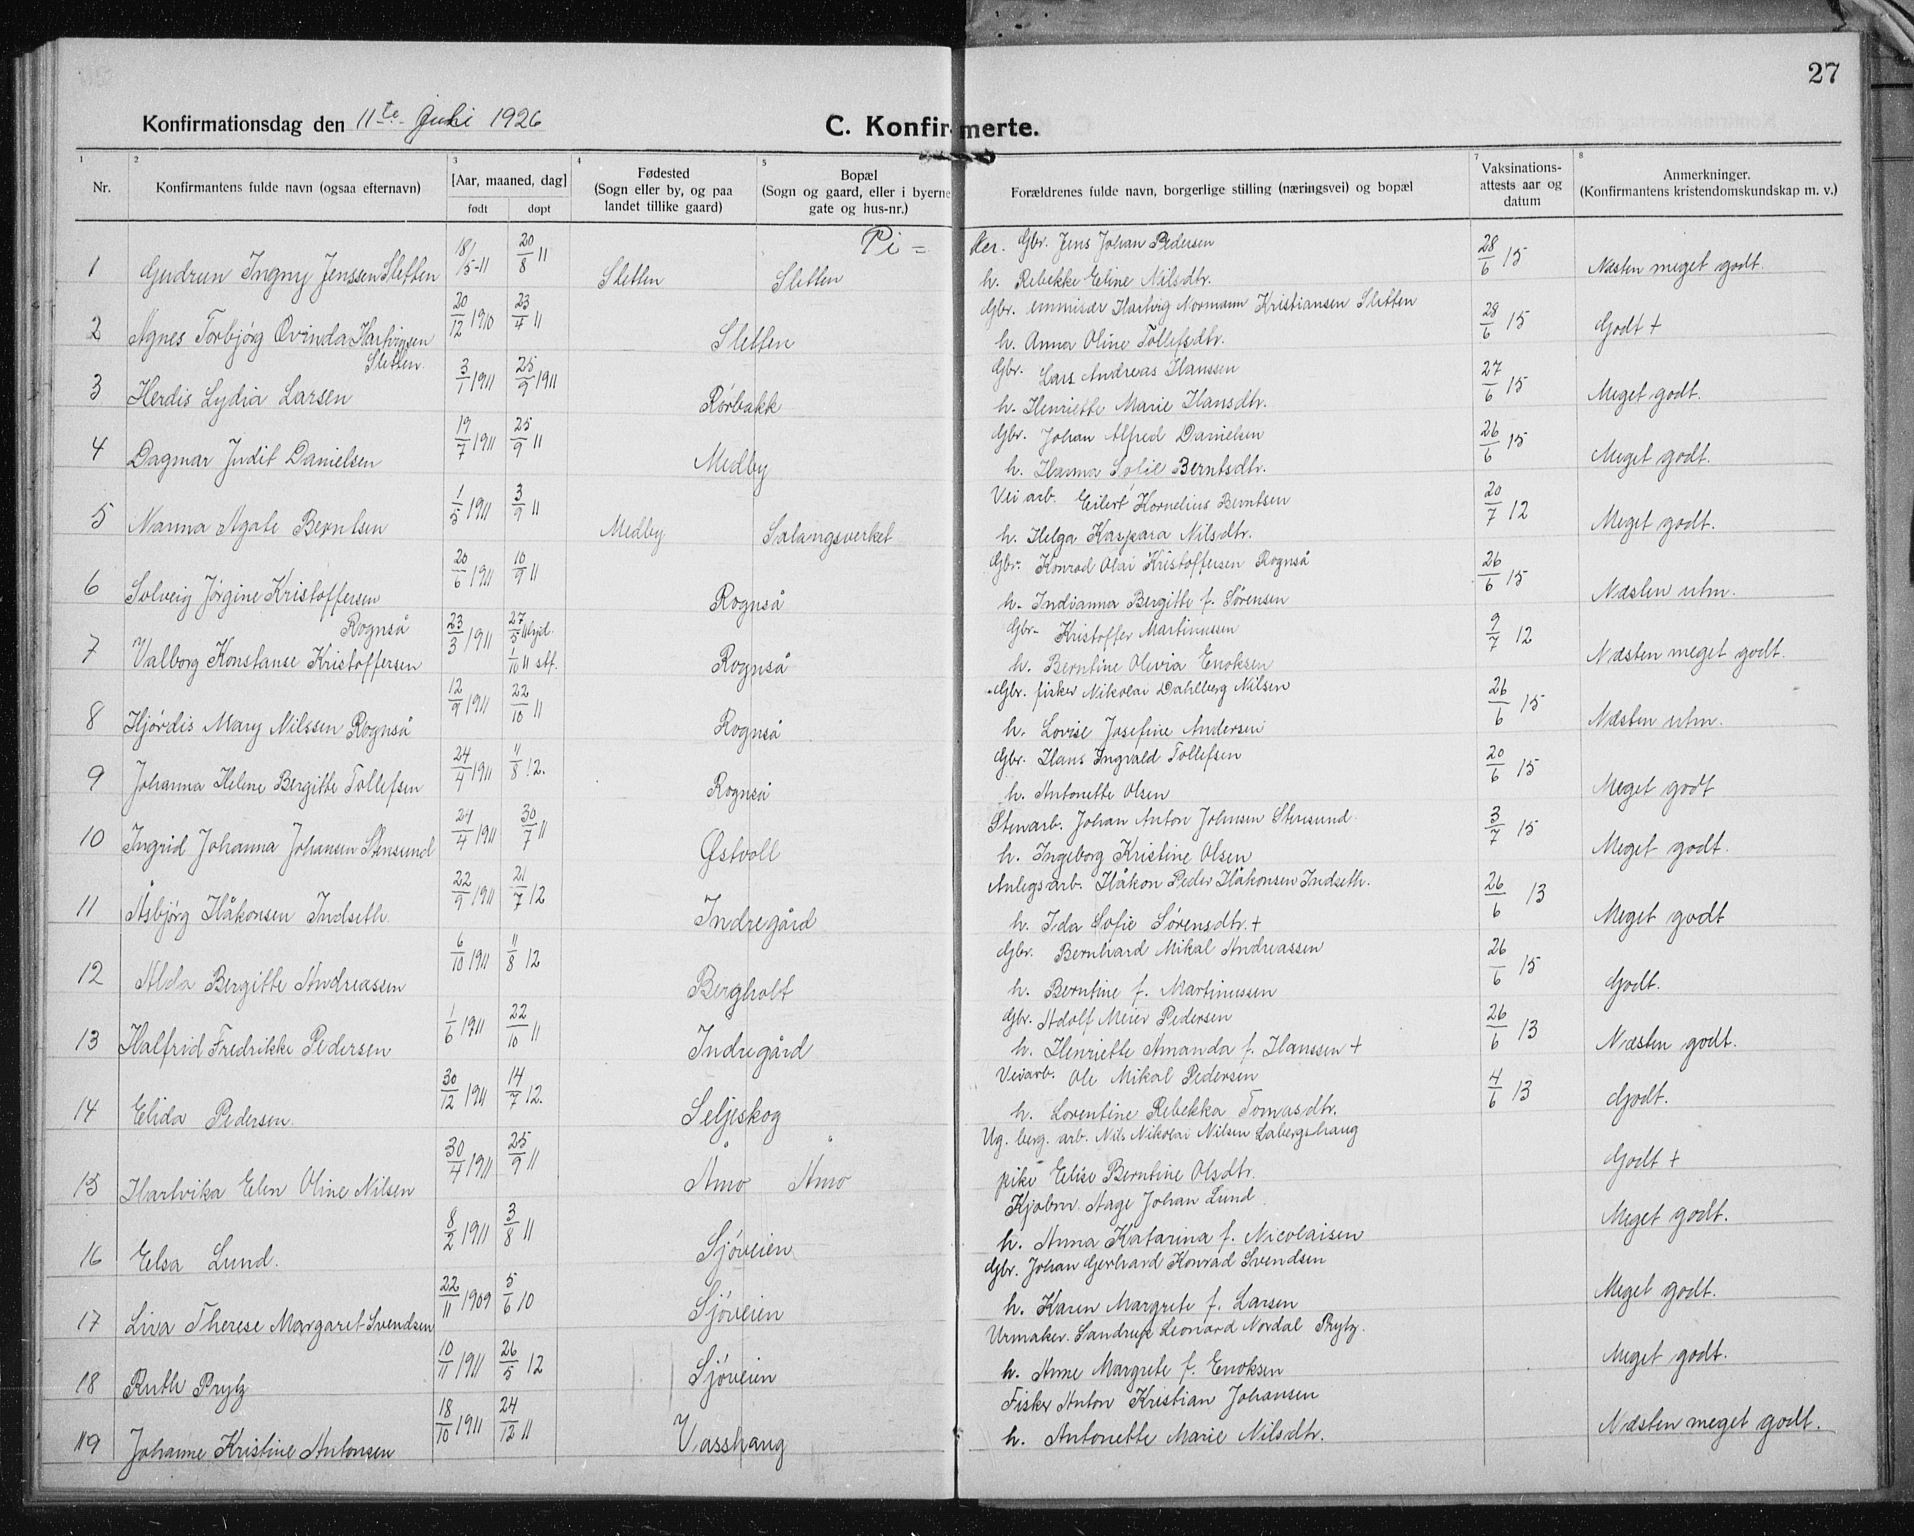 27
Konfirmationsdag den 11te Juli 1926 C. Konfirmerte.
1 2 3 4 5 7 8
Nr. Konfirmantens fulde navn (ogsaa efternavn) [Aar, maaned, dag] født døpt Fødested (Sogn eller by, og paa landet tillike gaard) Bopæl (Sogn og gaard, eller i byerne gate og hus-nr.) Forældrenes fulde navn, borgerlige stilling (næringsvei) og bopæl Vaksinations-attests aar og datum Anmerkninger. (Konfirmantens kristendomskundskap m. v.)
Pi = ker.
Gbr. Jens Johan Pedersen
1 Gudrun Ingny Jenssen Sletten 18/5-11 20/8 11 Sletten Sletten h. Rebekke Eline Nilsdtr. 28/6 15 Næsten meget godt.
Gbr. emmisær Hartvig Normann Kristiansen Sletten
2 Agnes Torbjørg Øvinda Hartvigsen Sletten 20/12 1910 23/4 11 Sletten h. Anna Oline Tollefsdtr. 28/6 15 Godt +
Gbr. Lars Andreas Hanssen
3 Herdis Lydia Larsen 3/1 1911 25/9 1911 Rørbakk h. Henriette Marie Hansdtr. 27/6 15 Meget godt.
Gbr. Johan Alfred Danielsen
4 Dagmar Judit Danielsen 19/7 1911 25/9 11 Medby h. Hanna Sofie Berntsdtr. 26/6 15 Meget godt.
Vei arb. Eilert Kornelius Berntsen
5 Nanna Agate Berntsen 1/5 1911 3/9 11 Medby Salangsverket h. Helga Kaspara Nilsdtr. 20/7 12 Meget godt.
Gbr. Konrad Olai Kristoffersen Rognså
6 Solveig Jørgine Kristoffersen Rognså 20/6 1911 10/9 11 Rognså h. Indianna Bergitte f. Sørensen 26/6 15 Næsten utm.
Gbr. Kristoffer Martinussen
7 Valborg Konstanse Kristoffersen 23/3 1911 27/5 11 hjd. 1/10 11 stf. Rognså h. Berntine Olevia Enoksen 9/7 12 Næsten meget godt.
Gbr. fisker Nikolai Dahlberg Nilsen
8 Hjørdis Mary Nilssen Rognså 12/9 1911 22/10 11 Rognså h. Lovise Josefine Andersen 26/6 15 Næsten utm.
Gbr. Hans Ingvald Tollefsen
9 Johanna Helene Bergitte Tollefsen 24/4 1911 11/8 12. Rognså h. Antonette Olsen 20/6 15 Meget godt
Stenarb. Johan Anton Johnsen Stensund
10 Ingrid Johanna Johansen Stensund 24/4 1911 30/7 11 Østvoll h. Ingeborg Kristine Olsen 3/7 15 Meget godt.
Anlegsarb. Håkon Peder Håkonsen Indseth.
11 Åsbjørg Håkonsen Indseth. 22/9 1911 21/7 12 Indregård h. Ida Sofie Sørensdtr. + 26/6 13 Meget godt
Gbr. Bernhard Mikal Andreassen
12 Alda Bergitte Andreassen 6/10 1911 11/8 12 Bergholt h. Berntine f. Martinussen 26/6 15 Godt.
Gbr. Adolf Meier Pedersen
13 Halfrid Fredrikke Pedersen 1/6 1911 22/10 11 Indregård h. Henriette Amanda f. Hanssen + 26/6 13 Næsten godt.
Veiarb. Ole Mikal Pedersen
14 Elida Pedersen. 30/12 1911 14/7 12. Seljeskog h. Lorentine Rebekka Tomasdtr. 4/6 13 Godt.
Ug. berg. arb. Nils Nikolai Nilsen Labergshaug
15 Hartvika Elen Oline Nilsen 30/4 1911 25/9 11 Åmo Åmo pike Elise Berntine Olsdtr. Godt +
Kjøbm. Aage Johan Lund.
16 Elsa Lund. 8/2 1911 3/8 11 Sjøveien h. Anna Katarina f. Nicolaisen Meget godt.
Gbr. Johan Gerhard Konrad Svendsen
17 Liva Therese Margaret Svendsen 22/11 1909 5/6 10 Sjøveien h. Karen Margrete f. Larsen Meget godt.
Urmaker. Sandrup Leonard Nordal Prytz.
18 Ruth Prytz 10/11 1911 26/5 12 Sjøveien h. Anne Margrete f. Enoksen Meget godt.
Fisker Anton Kristian Johansen
19 Johanne Kristine Antonsen 18/10 1911 24/12 11 Vasshaug h. Antonette Marie Nilsdtr. Næsten meget godt.